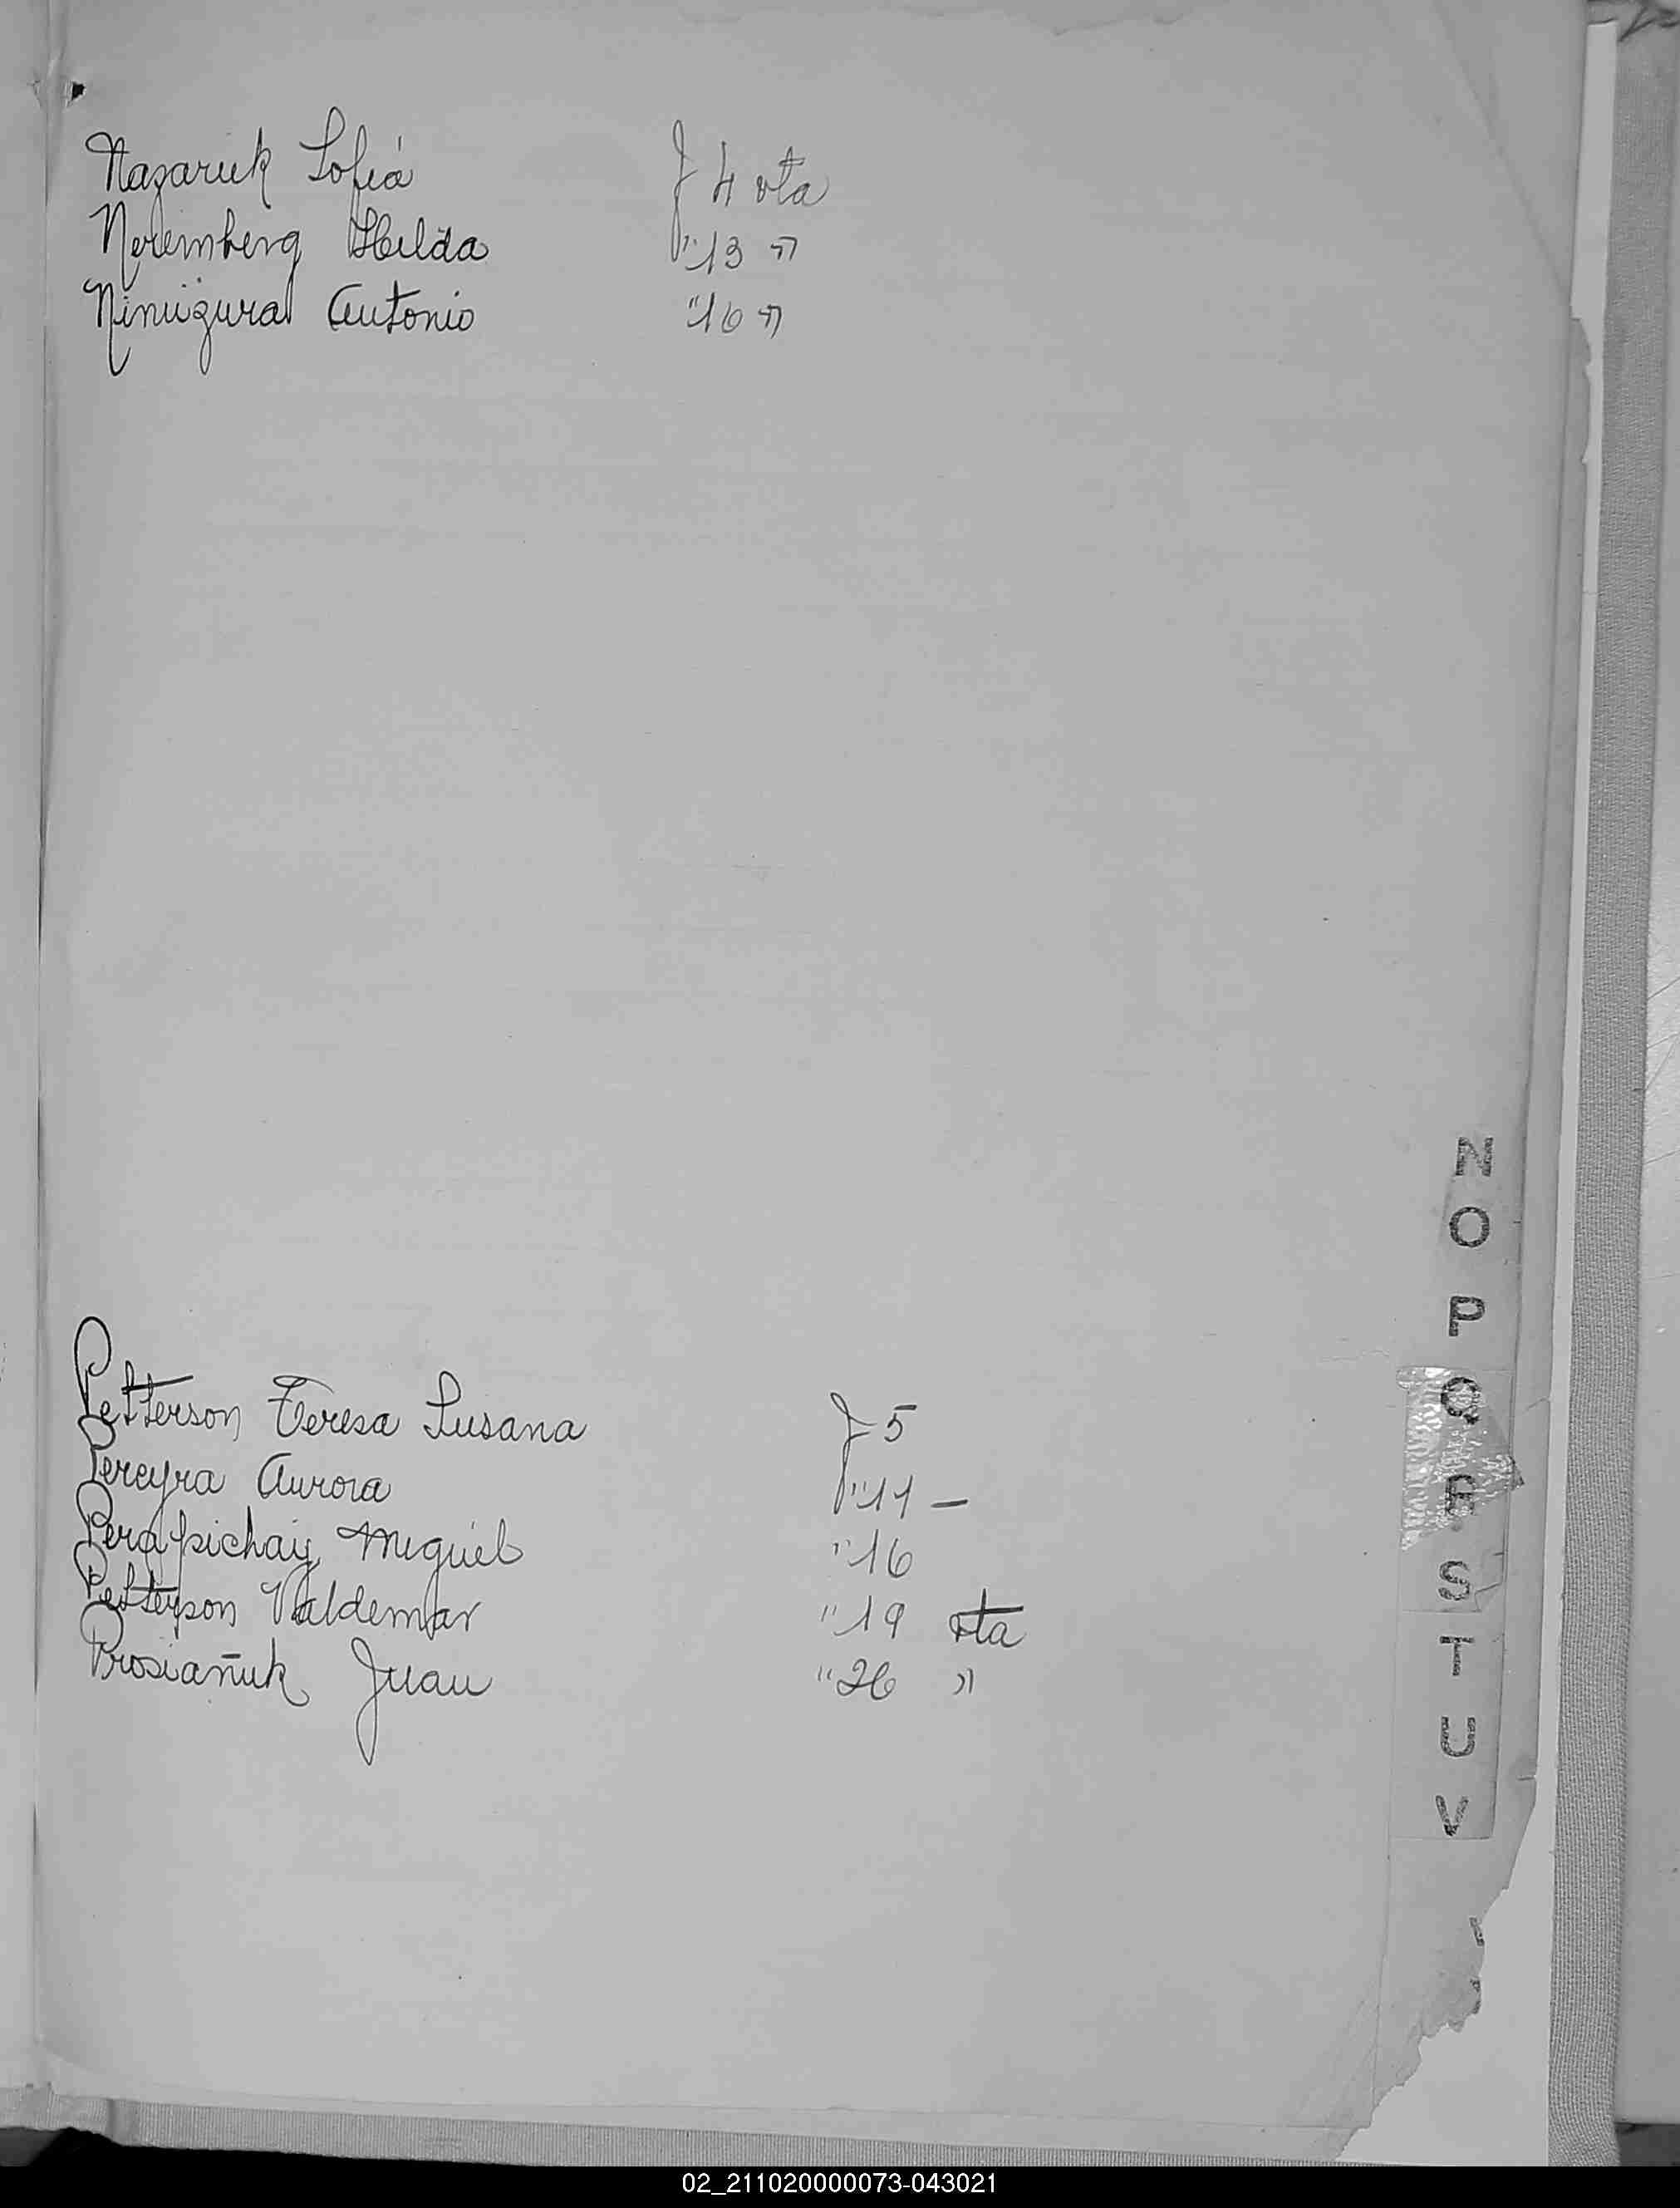 Nazaruk Sofia
F 4 vta
Neremberg Hilda
" 13 "
Antonio
" 16 "
Petterson Teresa Susana
F 5
Pereyra Aurora
" 11 —
Miguel
" 16
Petterson Valdemar
" 19 vta
Prosiañuk Juan
" 26 "
N
O
P
Q
R
S
T
U
V
02_211020000073-043021